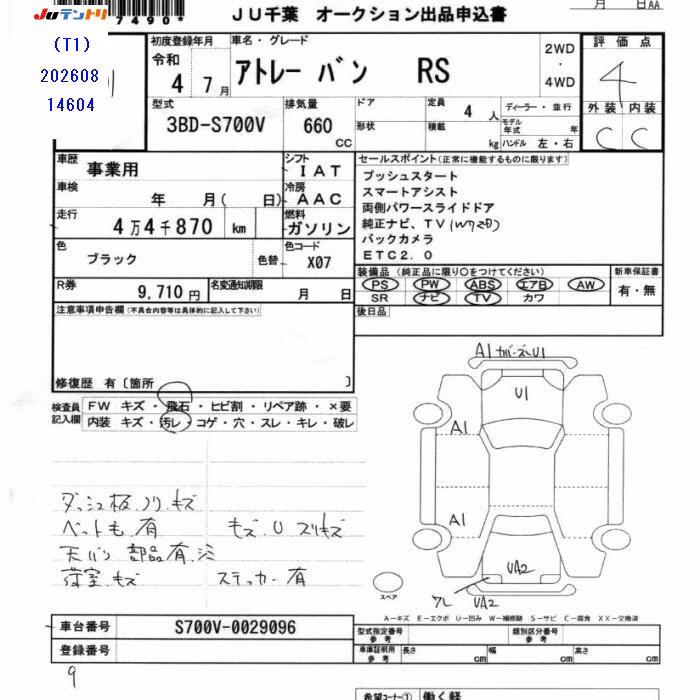 JUテントリ 7490*
JU千葉 オークション出品申込書
月 日AA
(T1)
202608
14604
初度登録年月
令和
4年 7月
車名・グレード
アトレー バン RS
2WD
・
4WD
評価点
4
外装 内装
C C
型式
3BD-S700V
排気量
660
CC
ドア
形状
定員
4 人
積載
kg
ディーラー・並行
モデル年式 年
ハンドル 左・右
車歴
事業用
シフト
IAT
車検
年 月( 日)
冷房
AAC
走行
4万4千870 km
燃料
ガソリン
色
ブラック
色替
色コード
X07
R券
9,710円
名変通知期限
月 日
セールスポイント(正常に機能するものに限ります)
プッシュスタート
スマートアシスト
両側パワースライドドア
純正ナビ、TV
バックカメラ
ETC2.0
装備品(純正品に限り○をつけてください)
PS PW ABS エアB AW
SR ナビ TV カワ
新車保証書
有・無
後日品
注意事項申告欄(不具合内容等は具体的に記入して下さい)
修復歴 有〔箇所 〕
検査員
記入欄
FW キズ・飛石・ヒビ割・リペア跡・×要
内装 キズ・汚レ・コゲ・穴・スレ・キレ・破レ
ダッシュ板ノリ、キズ
ペット毛有
天バリ 部品有
荷室キズ
キズ、U スリキズ
ステッカー有
A1 カバーズレU1
U1
A1
A1
UA2
ワレ UA2
スペア
A−キズ E−エクボ U−凹み W−補修跡 S−サビ C−腐食 XX−交換済
車台番号 S700V-0029096
登録番号
型式指定番号
参考
類別区分番号
参考
車庫証明用
参考
長さ cm 幅 cm 高さ cm
9
希望コーナー① 働く軽